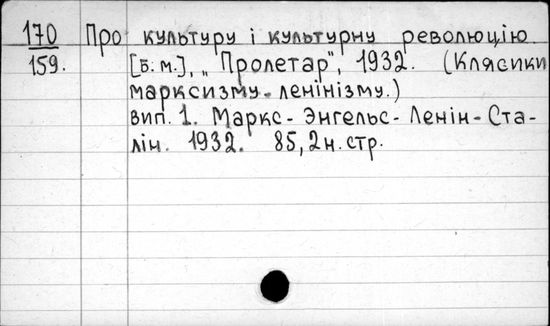 170 Про культуру і культурну революцію.
159. [Б.м.], „Пролетар", 1932. (Клясики
марксизму-ленінізму.)
вип. 1. Маркс-Энгельс-Ленін-Ста-
лін. 1932. 85,2н.стр.